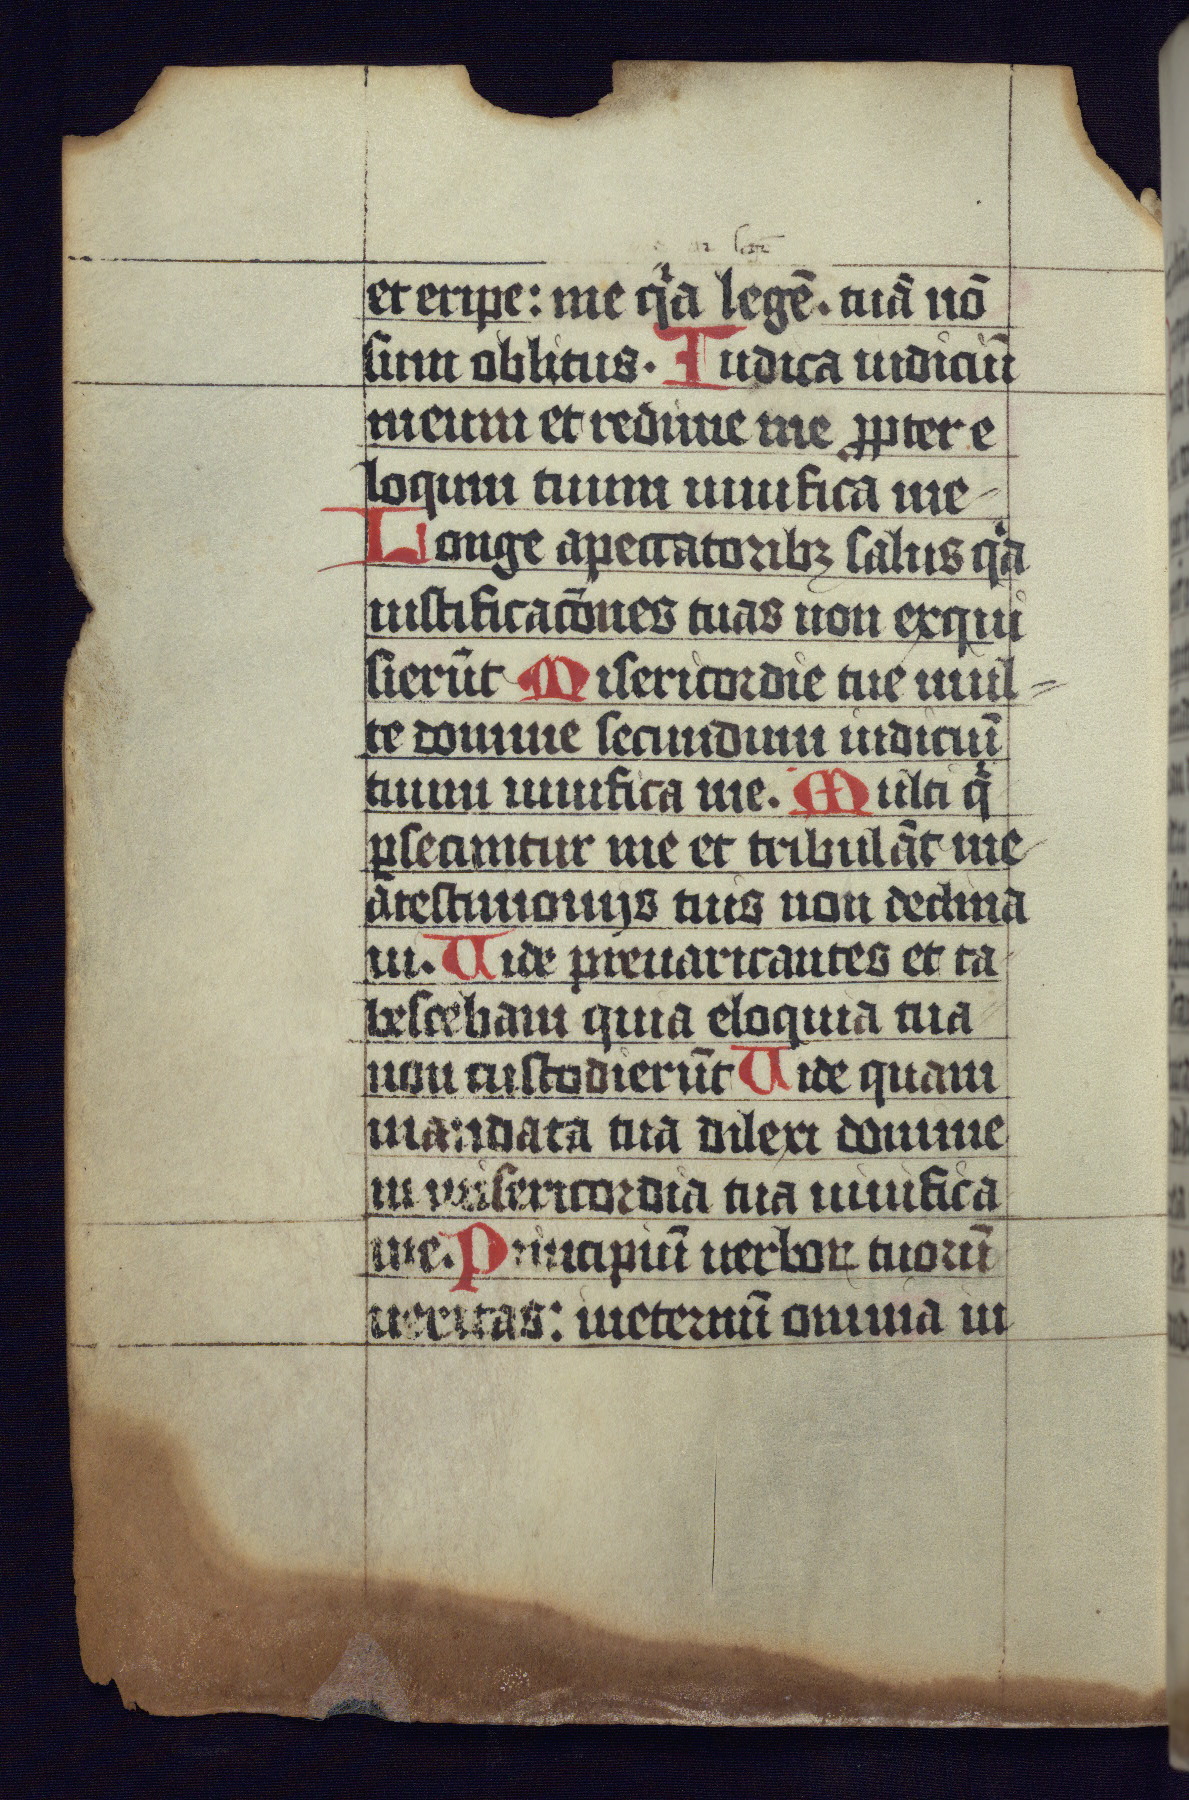 et eripe: me qͥa legē. tuā nō
sum oblitus. Iudica iudiciū
meum et redime me ꝓpter e
loquiu tuum uiuifica me
Longe apeccatoribꝫ salus qͥa
iustificac̄ones tuas non exqui
sierūt Misericordie tue mul=
te domine secundum iudiciuī
tuum uiuifica me. Multi qͥ
ꝑsecuntur me et tribulāt me
ātestimonijs tuis non declina
ui. Uide preuaricantes et ta
bescebam quia eloquia tua
non custodierūt Uide quam
mandata tua dilexi domine
in misericordia tua uiuifica
me. Principiū uerboꝝ tuorū
ueritas: ineternū omnia iu